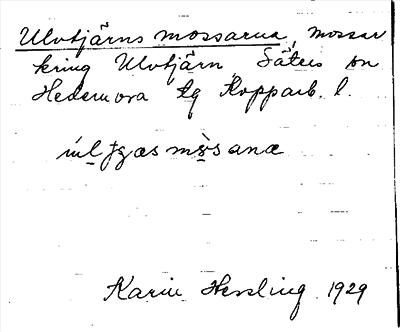 Ulvtjärns mossarna, mossar
kring Ulvtjärn, Säters sn
Hedemora tg Kopparb. l.
Karin Hessling 1929